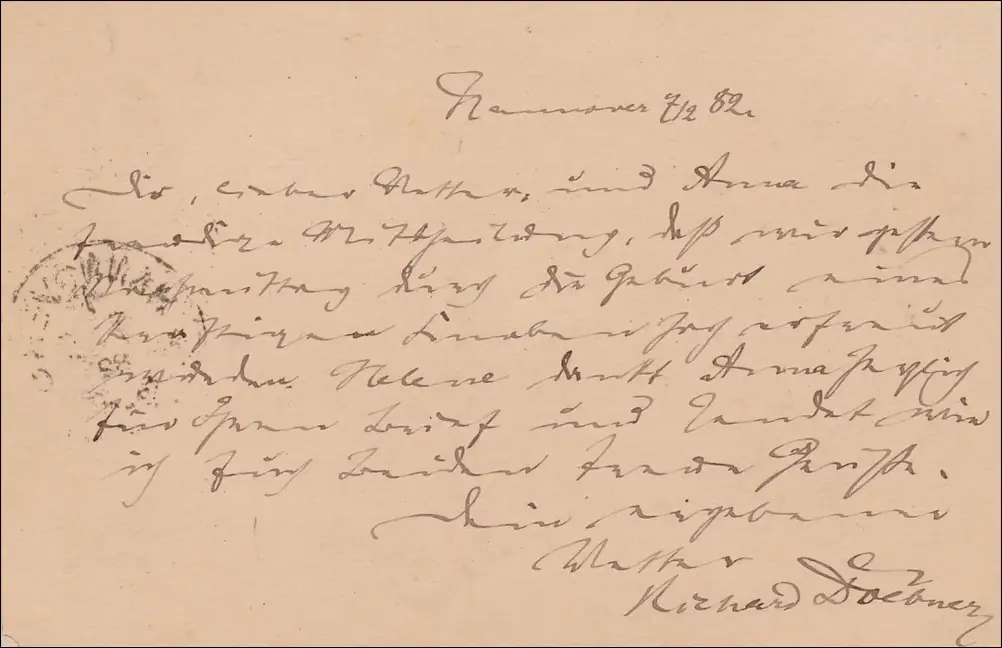 Hannover 7/2 82.
Dir, lieber Vetter, und Anna die
freudige Mittheilung, daß wir gestern
Nachmittag durch die Geburt eines
kräftigen Knaben hoch erfreut
wurden. Helene dankt Anna herzlich
für Ihren Brief und sendet wie
ich Euch beiden treue Grüße.
Dein ergebener
Vetter
Richard Doebner